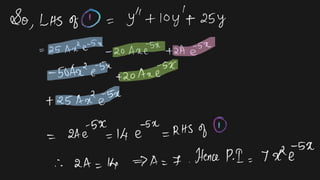 So, LHS of ① = y'' + 10y' + 25y
= 25Ax²e^-5x - 20Axe^-5x + 2Ae^-5x
- 50Ax²e^-5x + 20Axe^-5x
+ 25Ax²e^-5x
= 2Ae^-5x = 14e^-5x = RHS of ①
∴ 2A = 14 ⇒ A = 7. Hence P.I = 7x²e^-5x